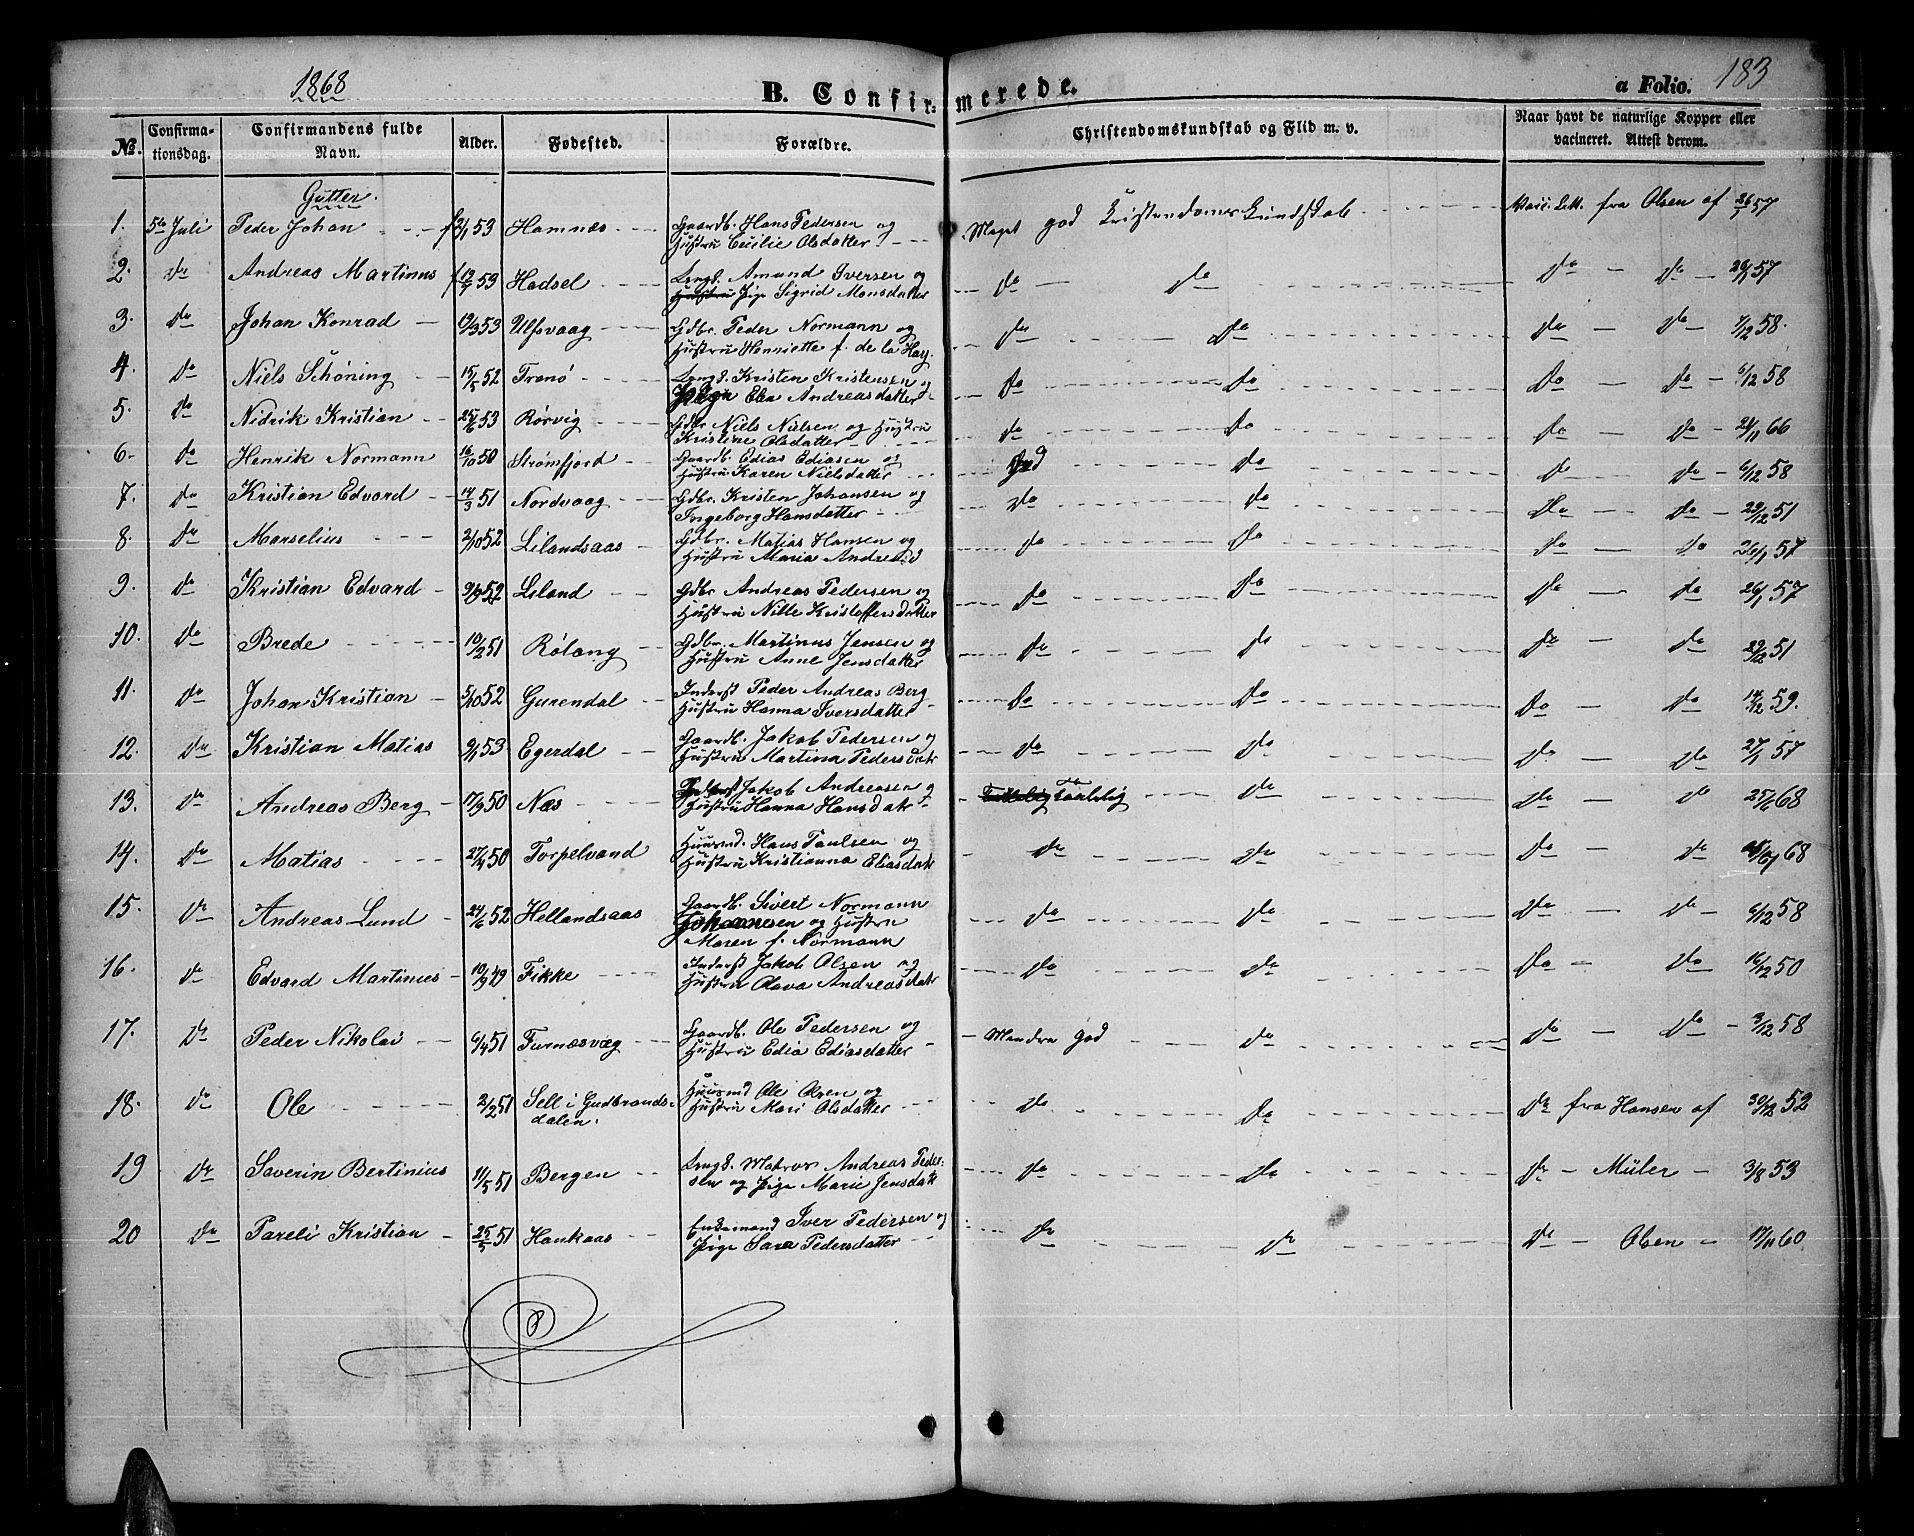 1868
B. Confirmerede.
a Folio. 183
No.
Confirmationsdag.
Confirmandens fulde Navn.
Alder.
Fødested.
Forældre.
Christendomskundskab og Flid m. v.
Naar havt de naturlige Kopper eller vacineret. Attest derom.
Gutter.
1. 5te Juli Peder Johan 53 Hamnæs Gaardb. Hans Pedersen og Hustru Cecilie Olsdatter Meget god Kristendomskundskab fra Olsen af 57
2. do Andreas Martinus 53 Hadsel Ungk. Amund Iversen og Hustru Pige Sigrid Monsdatter do do do do 57
3. do Johan Konrad 19/3 53 Ulfsvaag Gdbr. Peder Normann og Hustru Henriette f. de la Hay. do do do do 7/12 58.
4. do Niels Schøning 15/5 52 Tranø Ungk. Kristen Kristensen og Pige Elen Andreasdatter do do do do 6/12 58
5. do Nidrik Kristian 25/6 53 Rørvig Gdbr Niels Nielsen og Hustru Kristine Olsdatter do do do do 66
6. do Henrik Normann 16/10 50 Strømfjord Gaardb. Edias Ediasen og Hustru Karen Nielsdatter God do do do 6/12 58
7. do Kristian Edvard 14/3 51 Nordvaag Gdbr. Kristen Johansen og Ingeborg Hansdatter do do do do 29/12 51
8. do Marselius 2/10 52 Lilandsaas Gdbr. Matias Hansen og Hustru Maria Andreasd do do do do 26/1 57
9. do Kristian Edvard 52 Liland Gdbr Andreas Pedersen og Hustru Nille Kristoffersdatter do do do do 26/1 57
10. do Brede 10/2 51 Rølang Gdbr. Martinus Jensen og Hustru Anne Jensdatter do do do do 29/12 51
11. do Johan Kristian 5/10 52 Gurendal Inderst Peder Andreas Berg Hustru Hanna Iversdatter do do do do 14/12 59.
12. do Kristian Matias 9/1 53 Egerdal Gaardb. Jakob Pedersen og Hustru Martina Pedersdatr do do do do 27/1 57
13. do Andreas Berg 17/9 50 Næs Inderst Jakob Andreasen og Hustru Hanna Hansdatr Taalelig do do do 25/6 68
14. do Matias 27/4 50 Torpelvand Huusmd. Hans Paulsen og Hustru Kristianna Eliasdatr do do do do 68
15. do Andreas Lund 24/6 52 Hellandsaas Gaardb. Sivert Normann Johannesen og Hustru Maren f. Normann do do do do 6/12 58
16. do Edvard Martinius 10/9 49 Fikke Inderst Jakob Olsen og Hustru Olava Andreasdatr do do do do 16/12 50
17. do Peder Nikolai 6/4 51 Furnæsvæg Gaardb. Ole Pedersen og Hustru Edia Ediasdatter Mindre god do do do 3/12 58
18. do Ole 2/2 51 Sell i Gudbrandsdalen. Huusmd Ole Olsen og Hustru Mari Olsdatter do do do fra Hansen af 30/12 52
19 do Severin Bertinius 11/5 51 Bergen Ungk. Matros Andreas Pedersen og Pige Marie Jensdatr do do do Müler 3/8 53
20 do Pareli Kristian 25/5 51 Haukaas Enkemand Iver Pedersen og Pige Sara Pedersdatter do do do Olsen 17/11 60